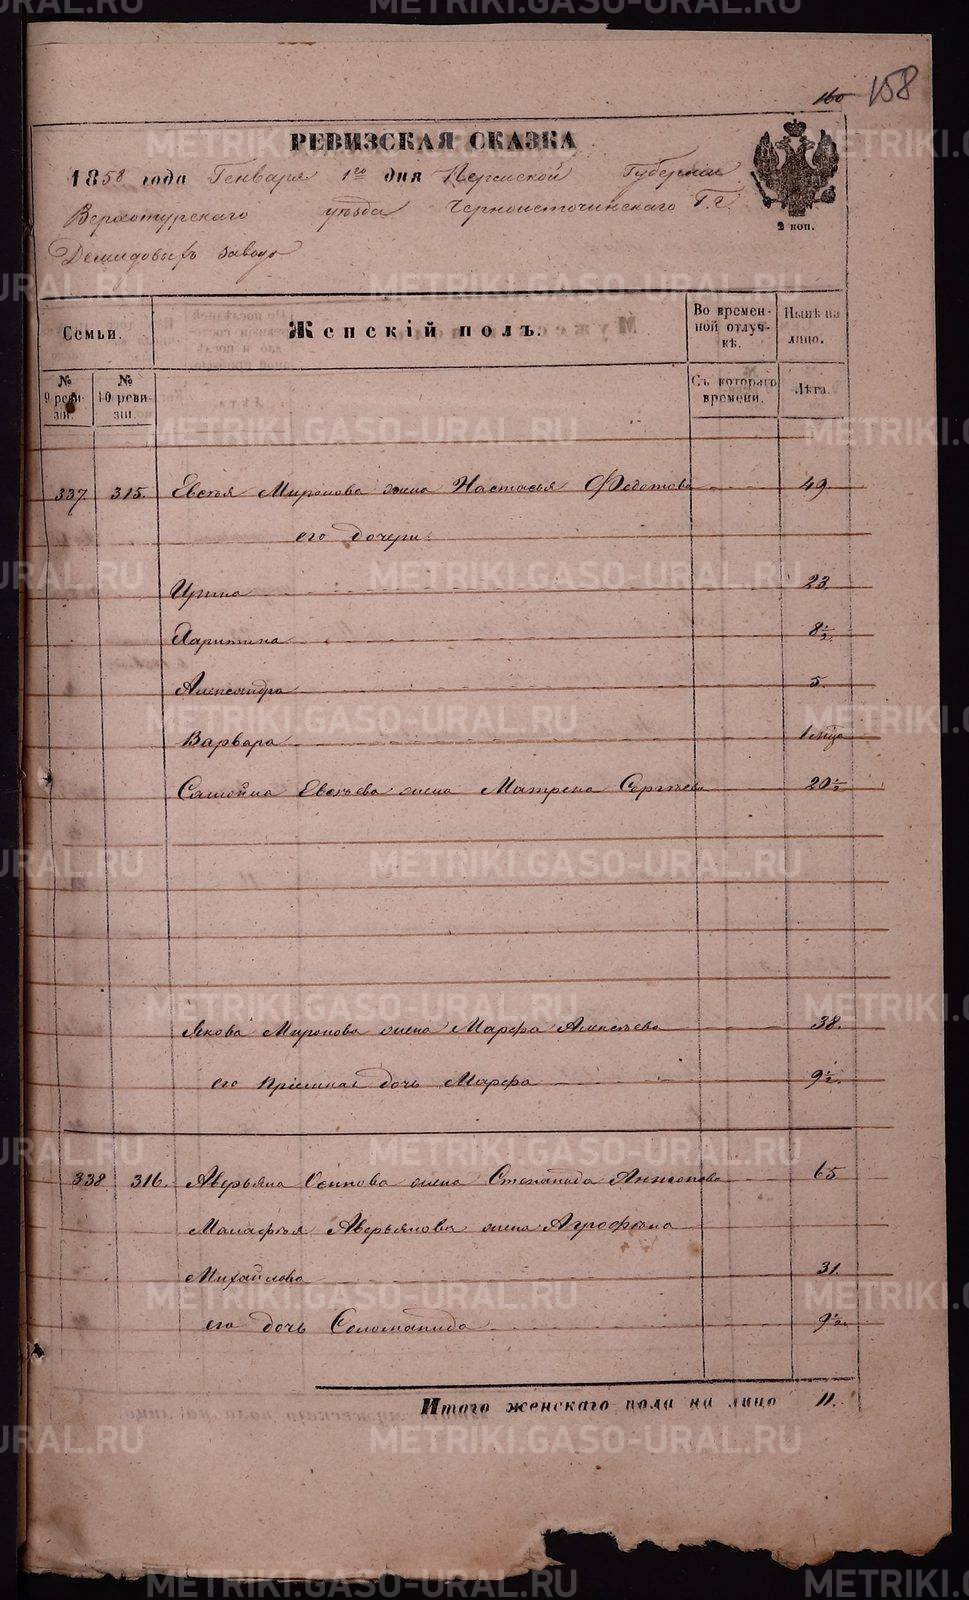 160 158
РЕВИЗСКАЯ СКАЗКА
1858 года Генваря 1го дня Пермской Губернiи
Верхотурскаго уѣзда Черноисточинскаго Г.г.
2 коп.
Демидовыхъ завода
Семьи.
Женскiй полъ.
Во времен-
ной отлуч-
кѣ.
Нынѣ на
лицо.
№
9 реви-
зiи.
№
10 реви-
зiи.
Съ котораго
времени.
Лѣта.
337. 315. Евсѣя Миронова жена Настасья Федотова 49.
его дочери:
Ирина 23.
Харитина 8½.
Александра 5.
Варвара 1 мца
Самойла Евсѣева жена Матрена Сергѣева 20½
Якова Миронова жена Марфа Алексѣева 38.
его прiемная дочь Марфа 9½.
338 316. Аверьяна Осипова жена Степанида Антонова 65
Малафѣя Аверьянова жена Агрофѣна
Михайлова 31.
его дочь Соломанида 9½.
Итого женскаго пола на лицо 11.
METRIKI.GASO-URAL.RU